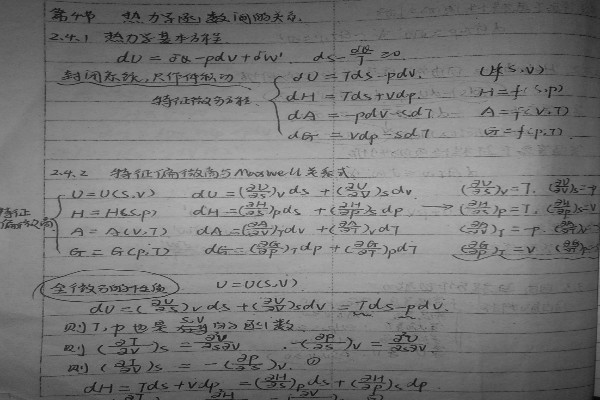 第4节 热力学函数间的关系
2.4.1 热力学基本方程
dU = δQ - pdV + δW' dS - δQ/T ≥ 0
封闭系统,只作体积功 dU = TdS - pdV. U = f(S,V)
特征微分方程 dH = TdS + Vdp H = f(S,p)
dA = -pdV - SdT A = f(V,T)
dG = Vdp - SdT G = f(p,T)
2.4.2 特征偏微商与Maxwell关系式
特征偏微商 U = U(S,V) dU = (∂U/∂S)v dS + (∂U/∂V)s dV (∂U/∂S)v = T. (∂U/∂V)s = -p
H = H(S,p) dH = (∂H/∂S)p dS + (∂H/∂p)s dp → (∂H/∂S)p = T, =V
A = A(V,T) dA = (∂A/∂V)T dV + (∂A/∂T)v dT (∂A/∂V)T = -p.
G = G(p,T) dG = (∂G/∂p)T dp + (∂G/∂T)p dT (∂G/∂p)T = V
全微分的性质 U = U(S,V)
dU = (∂U/∂S)v dS + (∂U/∂V)s dV = TdS - pdV.
则T,p也是S,V的函数
则 (∂T/∂V)s = ∂²U/∂S∂V . -(∂p/∂S)v = ∂²U/∂S∂V
则 (∂T/∂V)s = -(∂p/∂S)v. ①
dH = TdS + Vdp = (∂H/∂S)p dS + (∂H/∂p)s dp